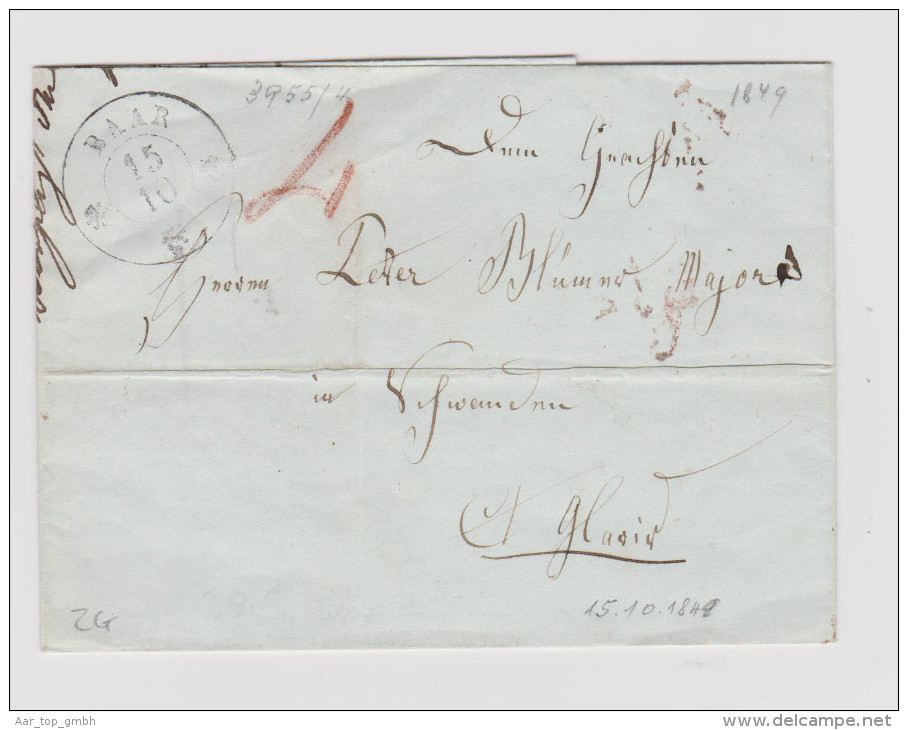 3955/4
1849
BAAR
15
10
4
Dem Geachten
Herren Peter Blumer Major
in Schwanden
Ct Glaris
15.10.1849
ZG
Aar_top_gmbh
www.delcampe.net